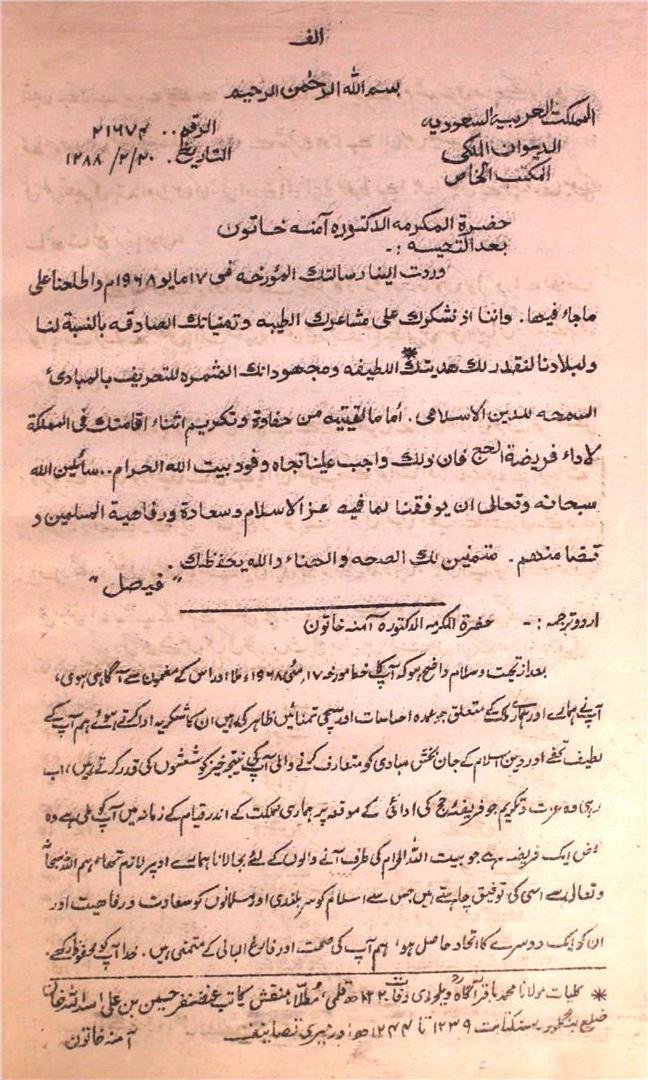 الف
بسم الله الرحمن الرحيم
المملكت العربيه السعوديه
الديوان الملكى
المكتب الخاص
الرقم .. ٢١٦٧٤
التاريخ . ٢٠/٢/١٢٨٨
حضرة المكرمه الدكتوره آمنه خاتون
بعد التحيه :-
وردت الينا رسالتك المؤرخه فى ١٧ مايو ١٩٦٨م واطلعنا على
ماجاء فيها. واننا اذ نشكرك على مشاعرك الطيبه وتمنياتك الصادقه بالنسبة لنا
ولبلادنا لنقدر لك هديتك* اللطيفه ومجهوداتك المثمره للتعريف بالمبادئ
السمحه للدين الاسلامى. أما مالقيتيه من حفاوة وتكريم اثناء اقامتك فى المملكة
لاداء فريضة الحج فان ذلك واجب علينا تجاه وفود بيت الله الحرام .. سائلين الله
سبحانه وتعالى ان يوفقنا لما فيه عز الاسلام وسعادة ورفاهية المسلمين و
تضامنهم. متمنين لك الصحه والهناء والله يحفظك.
"فيصل"
اردو ترجمہ :- حضرۃ المکرمہ الدکتورہ آمنہ خاتون
بعد از تحیت وسلام واضح ہو کہ آپ کا خط مورخہ ۱۷ مئی ۱۹۶۸ء ملا اور اس کے مضمون سے آگاہی ہوئی،
آپنے ہمارے اور ہمارے ملک کے متعلق جو عمدہ احساسات اور سچی تمنائیں ظاہر کی ہیں ان کا شکریہ ادا کرتے ہوئے ہم آپ کے
لطیف تحفے اور دین اسلام کے جان بخش مبادی کو متعارف کرنے والی آپ کی نتیجہ خیز کوششوں کی قدر کرتے ہیں، اب
رہی وہ عزت و تکریم جو فریضۂ حج کی ادائی کے موقعہ پر ہماری مملکت کے اندر قیام کے زمانہ میں آپ کو ملی ہے وہ
ایک فریضہ ہے جو بیت اللہ الحرام کی طرف آنے والوں کے لئے بجا لانا ہمارے اوپر لازم تھا، ہم اللہ سبحانہ
وتعالی سے اسی کی توفیق چاہتے ہیں جس سے اسلام کو سربلندی اور مسلمانوں کو سعادت ورفاہیت اور
ان کو ایک دوسرے کا اتحاد حاصل ہو، ہم آپ کی صحت اور فارغ البالی کے متمنی ہیں. خدا آپ کو محفوظ رکھے.
* کلیات مولانا محمد باقر آگاہ ویلوری وفات ۱۲۲۰ھ قلمی، مُطلّا منقش کاتب غضنفر حسین بن علی اسد اللہ خان
ضلع بنگلور سنہ کتابت ۱۲۳۹ تا ۱۲۴۴ھ اور میری تصانیف آمنہ خاتون